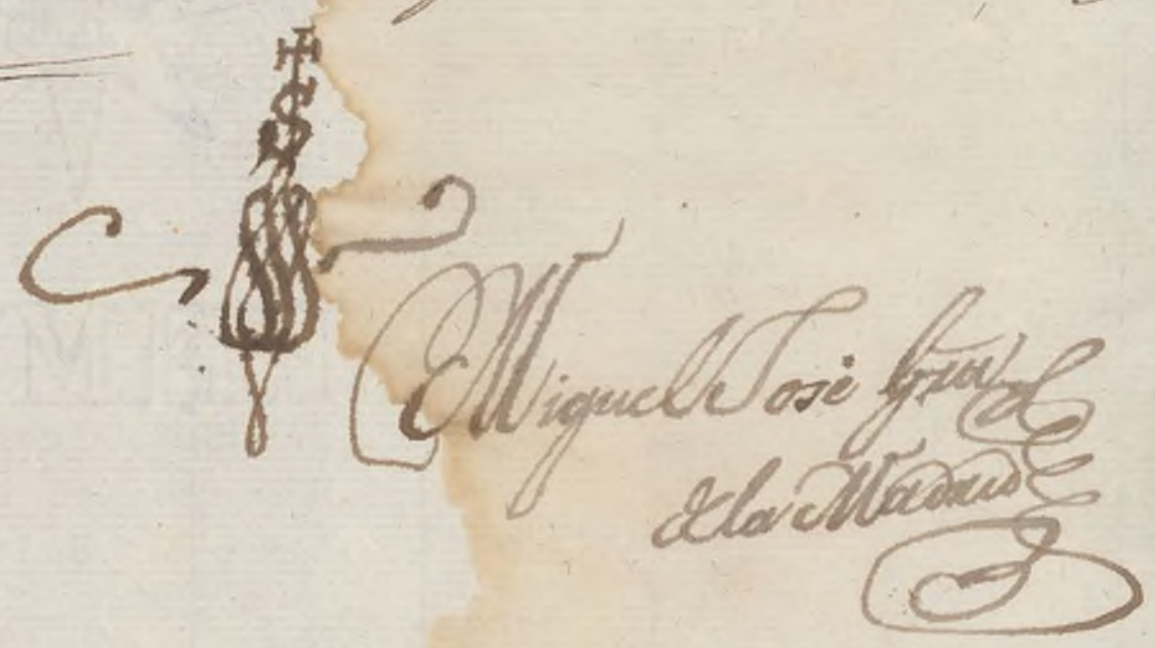 S
Miguel José
de la Madrid